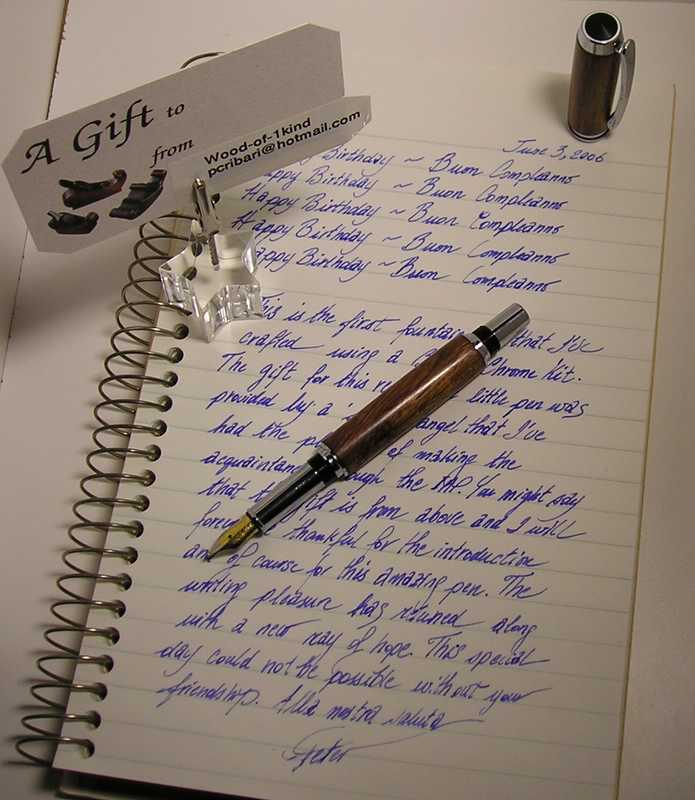 A Gift to
from
Wood-of-1kind
pcribari@hotmail.com
June 3, 2006
Birthday ~ Buon Compleanno
Happy Birthday ~ Buon Compleanno
Happy Birthday ~ Buon Compleanno
Happy Birthday ~ Buon Compleanno
Happy Birthday ~ Buon Compleanno
This is the first fountain that I've
crafted using a Chrome Kit.
The gift for this little pen was
provided by a angel that I've
had the of making the
acquaintance through the IAP. You might say
that this gift is from above and I will
forever thankful for the introduction
and of course for this amazing pen. The
writing pleasure has returned along
with a new ray of hope. This special
day could not be possible without your
friendship. Alla nostra saluta
Peter